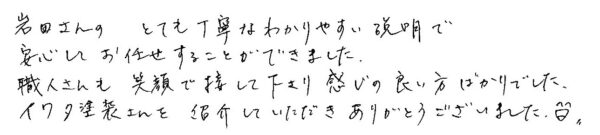 岩田さんの とても丁寧なわかりやすい説明で
安心してお任せすることができました.
職人さんも 笑顔で接して下さり 感じの良い方ばかりでした.
イワタ塗装さんを 紹介していただき ありがとうございました.